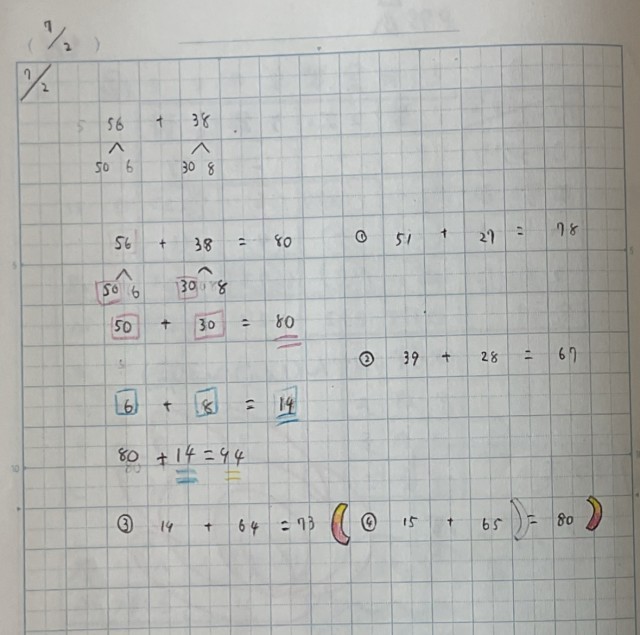 ( 7/2 )
7/2
56 + 38
50 6 30 8
56 + 38 = 80
50 6 30 8
50 + 30 = 80
6 + 8 = 14
80 + 14 = 94
① 51 + 27 = 78
② 39 + 28 = 67
③ 14 + 64 = 73
④ 15 + 65 = 80